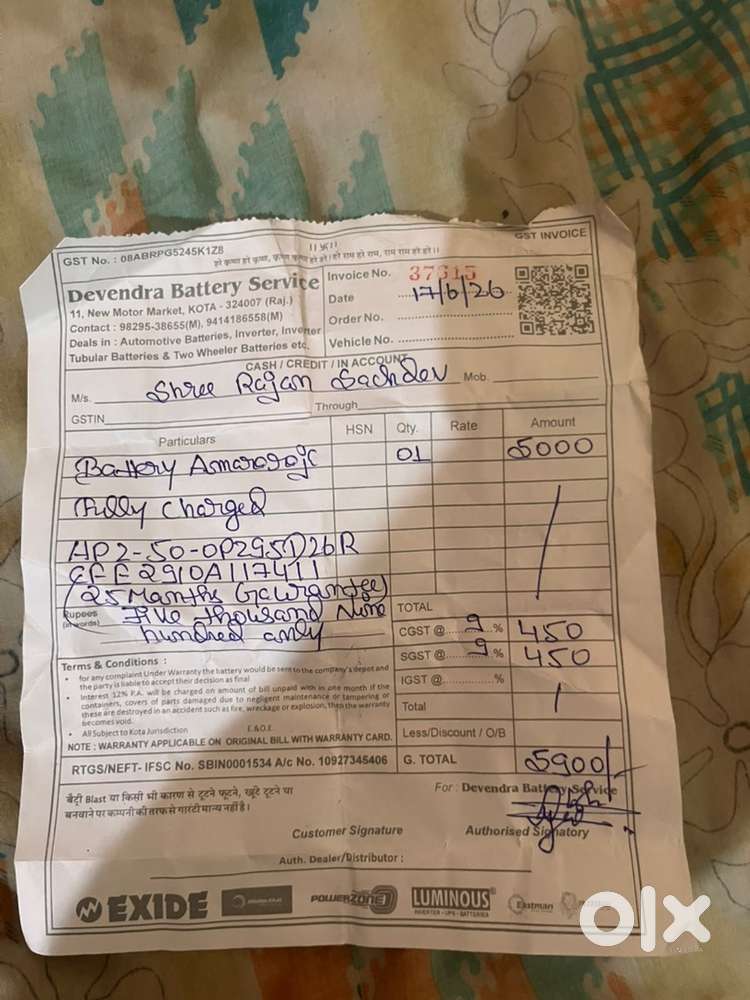 GST No. : 08ABRPG5245K1Z8
GST INVOICE
Devendra Battery Service
11, New Motor Market, KOTA - 324007 (Raj.)
Contact : 98295-38655(M), 9414186558(M)
Deals in : Automotive Batteries, Inverter, Inverter
Tubular Batteries & Two Wheeler Batteries etc.
Invoice No. 37615
Date 17/6/26
Order No.
Vehicle No.
CASH / CREDIT / IN ACCOUNT
M/s. Shree Rajan Sachdev Mob.
GSTIN Through
Particulars HSN Qty. Rate Amount
Battery Amararaja 01 5000
Fully Charged
AP2-50-0P295D26R
CFE2910A117411
(25 Months Gawrantee)
Rupees (in words) Five thousand Nine
hundred only
TOTAL
CGST @ 9 % 450
SGST @ 9 % 450
IGST @ %
Total
Less/Discount / O/B
G. TOTAL 5900/-
Terms & Conditions :
• for any complaint Under Warranty the battery would be sent to the company's depot and
the party is liable to accept their decision as final
• Interest 12% P.A. will be charged on amount of bill unpaid with in one month if the
containers, covers of parts damaged due to negligent maintenance or tampering or
these are destroyed in an accident such as fire, wreckage or explosion, then the warranty
becomes void.
• All Subject to Kota Jurisdiction E.&O.E.
NOTE : WARRANTY APPLICABLE ON ORIGINAL BILL WITH WARRANTY CARD.
RTGS/NEFT- IFSC No. SBIN0001534 A/c No. 10927345406
बैट्री Blast या किसी भी कारण से टूटने फूटने, खूंटे टूटने पा
बनवाने पर कम्पनी की तरफ से गारंटी मान्य नहीं है।
For : Devendra Battery Service
Customer Signature
Authorised Signatory
Auth. Dealer/Distributor :
EXIDE
POWERZONE
LUMINOUS
INVERTER - UPS - BATTERIES
Eastman
olx